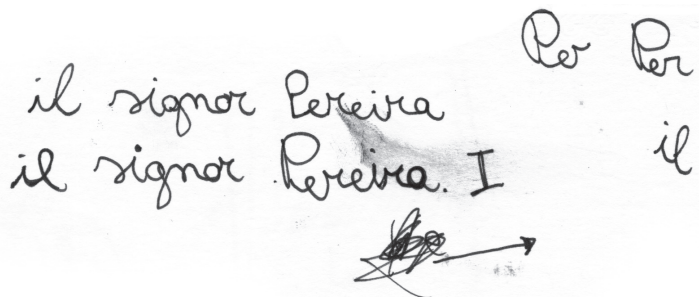 Per Per
il signor Pereira
il signor Pereira. I
il